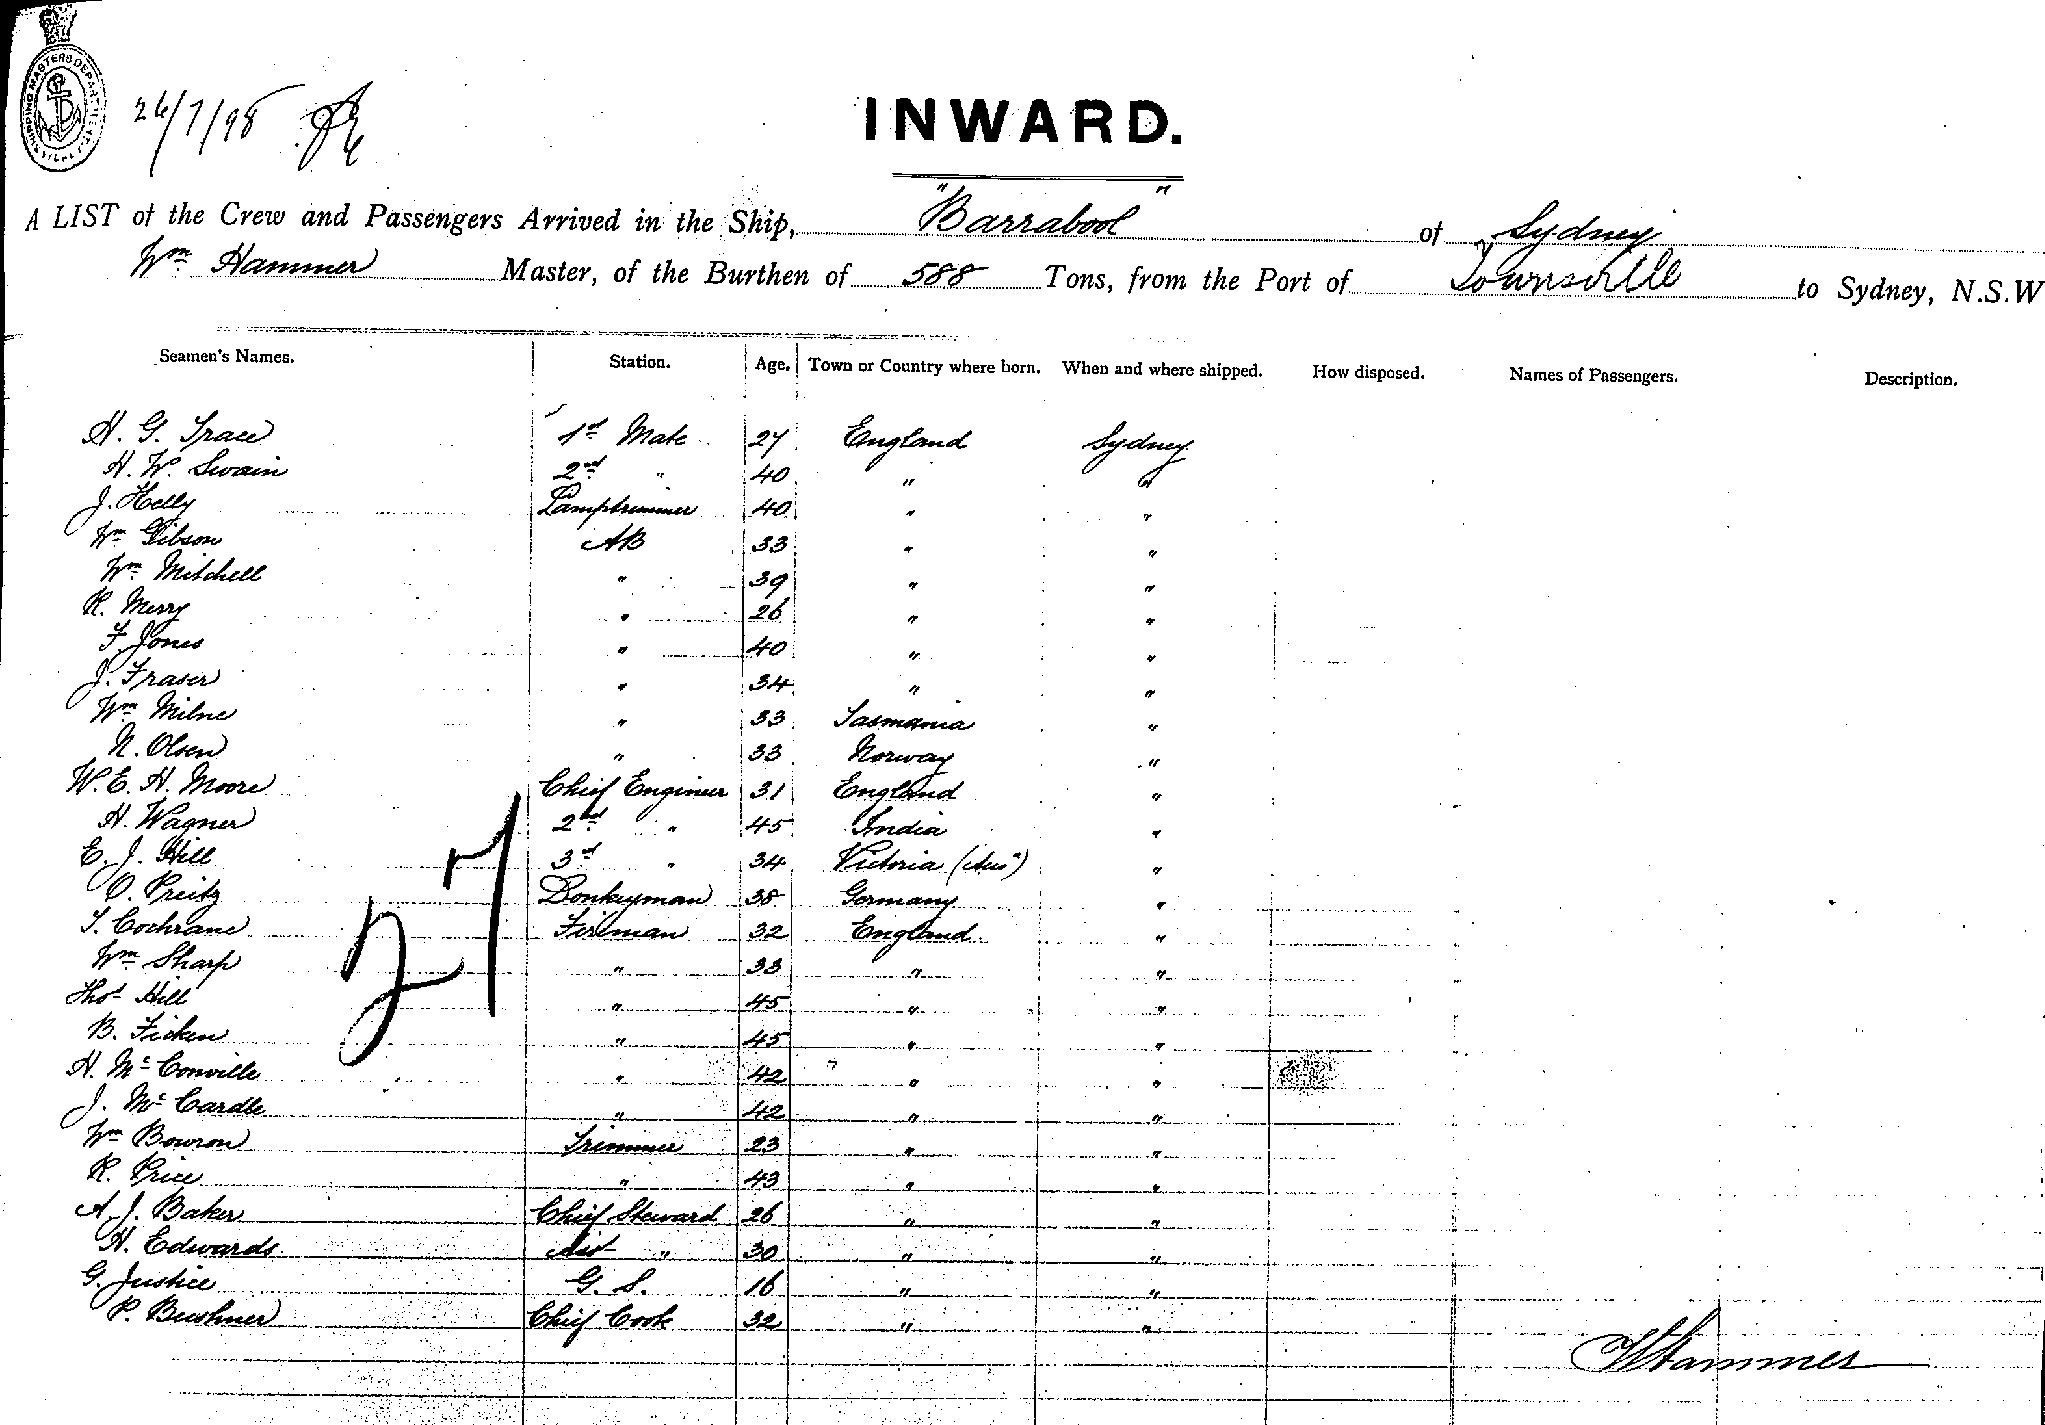 SHIPPING MASTERS DEPARTMENT
26/7/98
INWARD.
A LIST of the Crew and Passengers Arrived in the Ship, "Barrabool" of Sydney
Wm Hammer Master, of the Burthen of 588 Tons, from the Port of Townsville to Sydney, N.S.W
Seamen's Names. Station. Age. Town or Country where born. When and where shipped. How disposed. Names of Passengers. Description.
H. G. Trace 1st Mate 27 England Sydney
H. W. Swain 2nd " 40 " "
J. Helly Lamptrimmer 40 " "
Wm Gibson AB 33 " "
Wm Mitchell " 39 " "
R. Merry " 26 " "
F. Jones " 40 " "
J. Fraser " 34 " "
Wm Milne " 33 Tasmania "
N. Olsen " 33 Norway "
W. E. H. Moore Chief Engineer 31 England "
H. Wagner 2nd " 45 India "
E. J. Hill 3rd " 34 Victoria (Aus) "
O. Preitz Donkeyman 38 Germany "
T. Cochrane Fireman 32 England "
Wm Sharp " 33 " "
Thos Hill " 45 " "
B. Ficken " 45 " "
H. Mc Conville " 42 " "
J. Mc Cardle " 42 " "
Wm Bowron Trimmer 23 " "
R. Price " 43 " "
A. J. Baker Chief Steward 26 " "
H. Edwards Asst " 30 " "
G. Justice G. S. 16 " "
P. Bushner Chief Cook 32 " "
27
WHammer